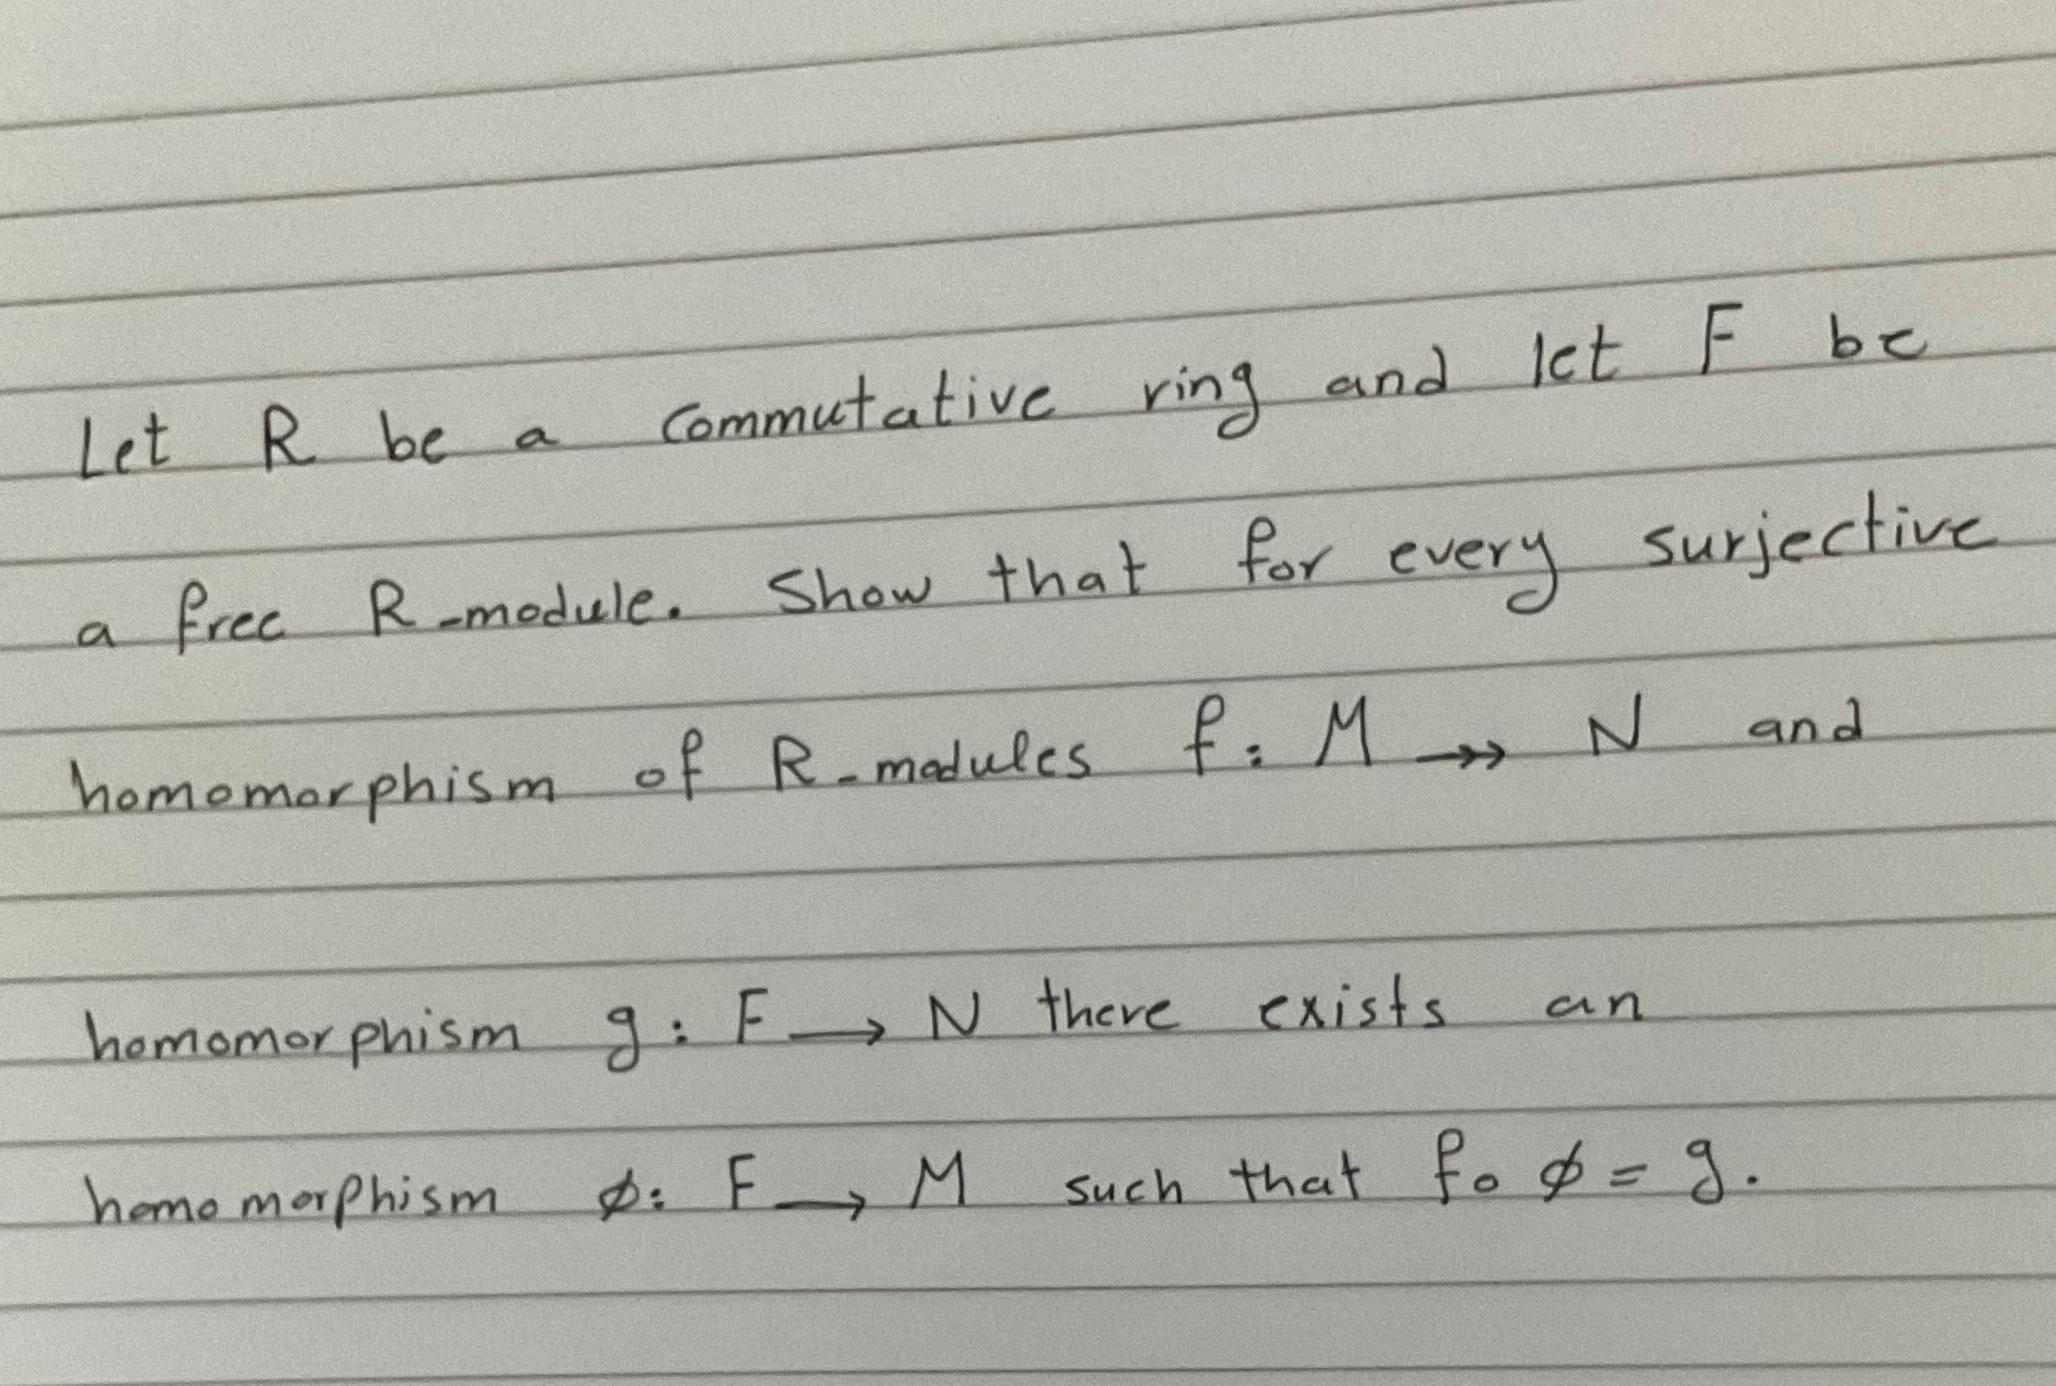 Let R be a commutative ring and let F be
a free R-module. Show that for every surjective
homomorphism of R-modules f: M ↠ N and
homomorphism g: F → N there exists an
homomorphism ϕ: F → M such that f∘ϕ = g.